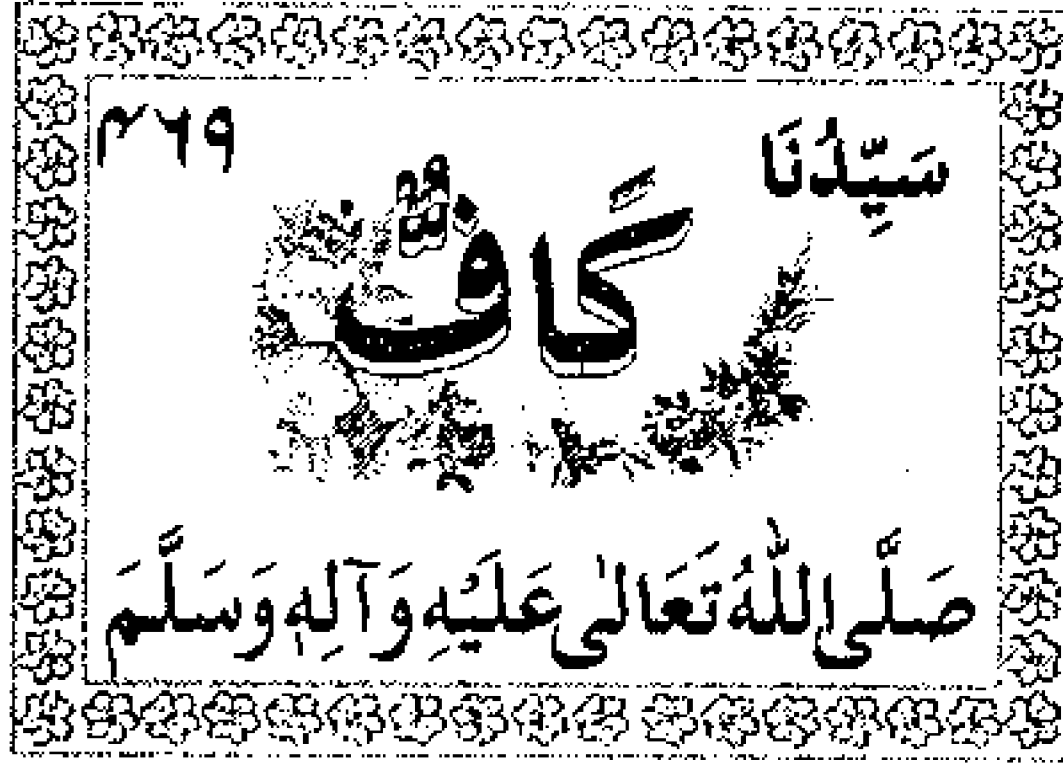 سَيِّدُنَا
۴۶۹
كَافٌّ
صَلَّى اللّٰهُ تَعَالىٰ عَلَيْهِ وَآلِهٖ وَسَلَّمَ